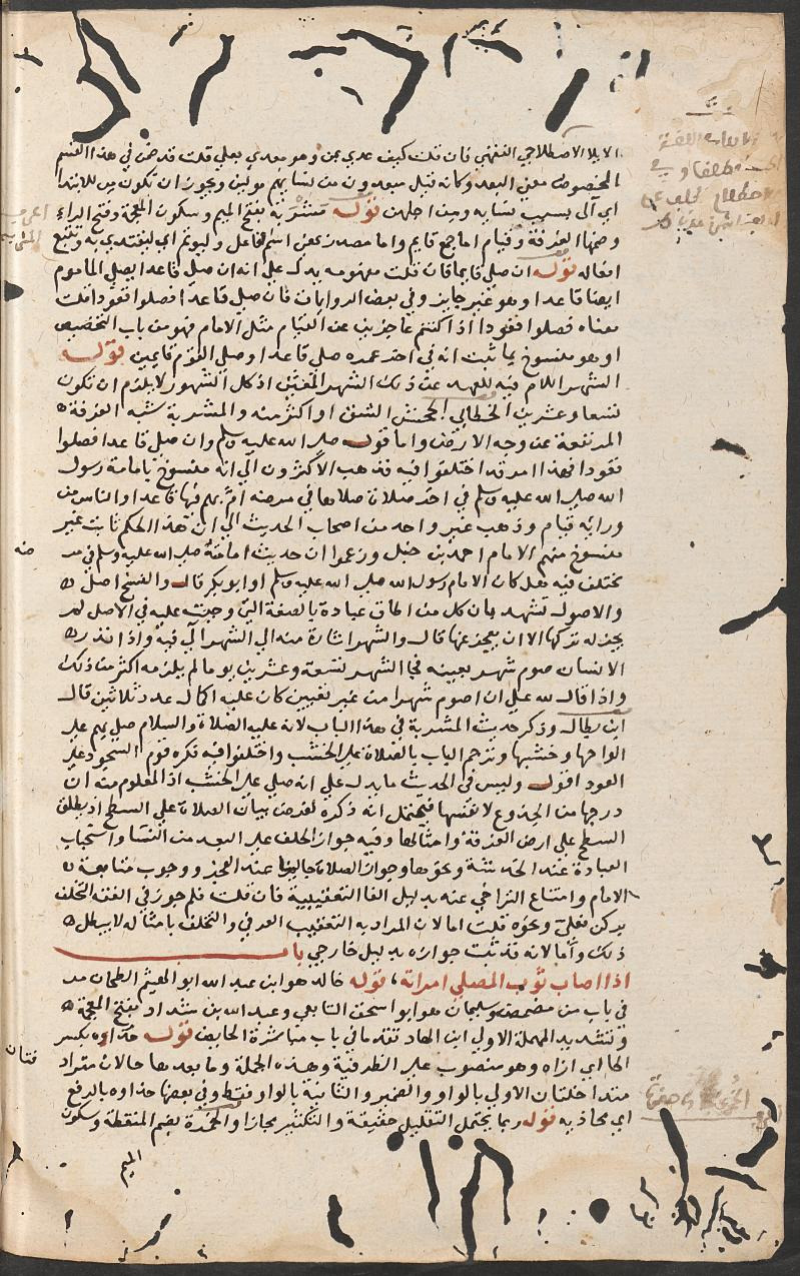 الايلا الاصطلاحي الفقهي فان قلت كيف عدي بمن وهو معدي بعلي قلت قد ضمن في هذا القسم
المخصوص معني البعد وكانه قيل يبعدون من نسايهم مولين ويجوز ان تكون من للابتدا
اي آلى بسبب نسايه ومن اجلهن قوله مشربة بفتح الميم وسكون المعجمة وفتح الراء
وضمها الغرفة وقيام اما جمع قايم واما مصدر بمعني اسم الفاعل وليوتم اي ليقتدي به ويتبع
افعاله قوله ان صلي قايما فان قلت مفهومه يدل علي انه ان صلي قاعدا يصلي الماموم
ايضا قاعدا وهو غير جايز وفي بعض الروايات فان صلي قاعدا فصلوا قعودا قلت
معناه فصلوا قعودا اذا كنتم عاجزين عن القيام مثل الامام فهو من باب التخصيص
او هو منسوخ بما ثبت انه في اخر عمره صلي قاعدا وصلي القوم قايمين قوله
الشهر اللام فيه للعهد عن ذلك الشهر المعين اذ كل الشهور لا يلزم ان تكون
تسعا وعشرين الخطابي الجحش الشق او اكثر منه والمشربة شبه الغرفة
المرتفعة عن وجه الارض واما قوله صلى الله عليه وسلم وان صلي قاعدا فصلوا
قعودا فهذا امر قد اختلفوا فيه فذهب الاكثرون الي انه منسوخ بامامة رسول
الله صلى الله عليه وسلم في اخر صلاة صلاها في مرضه امّ بهم فيها قاعدا والناس من
ورائه قيام وذهب غير واحد من اصحاب الحديث الي ان هذا الحكم ثابت غير
منسوخ منهم الامام احمد بن حنبل وزعموا ان حديث امامته صلى الله عليه وسلم في مر
ضه
يختلف فيه هل كان الامام رسول الله صلى الله عليه وسلم او ابو بكر قال والنسخ اصل
والاصول تشهد بان كل من اطاق عبادة بالصفة التي وجبت عليه في الاصل لم
يجز له تركها الا ان يعجز عنها قال والشهر اشارة منه الي الشهر الي فيه واذا نذر
الانسان صوم شهر بعينه فجا الشهر تسعة وعشرين يوما لم يلزمه اكثر من ذلك
واذا قال لله علي ان اصوم شهرا من غير تعيين كان عليه اكمال عدد ثلاثين قال
ابن بطال وذكر حديث المشربة في هذا الباب لانه عليه الصلاة والسلام صلي بهم علي
الواحها وخشبها وترجم الباب بالصلاة علي الخشب واختلفوا فيه فكره قوم السجود علي
العود اقول وليس في الحديث ما يدل علي انه صلي علي الخشب اذ المعلوم منه ان
درجها من الجذوع لا نفسها فيحتمل انه ذكره لغرض بيان الصلاة علي السطح اذ يطلق
السطح علي ارض الغرفة وامثالها وفيه جواز الحلف علي البعد من النسا واستحباب
العيادة عند الخدشة ونحوها وجواز الصلاة جالسا عند العجز ووجوب متابعة
الامام وامتناع التراخي عنه بدليل الفا التعقيبية فان قلت فلم جوز في الفقه التخلف
بركن فعلي ونحوه قلت اما لان المراد به التعقيب العرفي والتخلف بامثاله لا يبطل
ذلك واما لانه قد ثبت جوازه بدليل خارجي باب
اذا اصاب ثوب المصلي امراته قوله خالد هو ابن عبد الله ابو الهيثم الطحان مر
في باب من مضمض وسليمان هو ابو اسحق التابعي وعبد الله بن شداد بفتح المعجمة
وتشديد المهملة الاولي ابن الهاد تقدما في باب مباشرة الحايض قوله حذاءه بكسر
الحا اي ازاه وهو منصوب علي الظرفية وهذه الجملة وما بعدها حالان مترادفتان
او متداخلتان الاولي بالواو والضمير والثانية بالواو فقط وفي بعضها حذاوه بالرفع
اي محاذيه قوله ربما يحتمل التقليل حقيقة والتكثير مجازا والخمرة بضم المنقطة وسكون
الميم